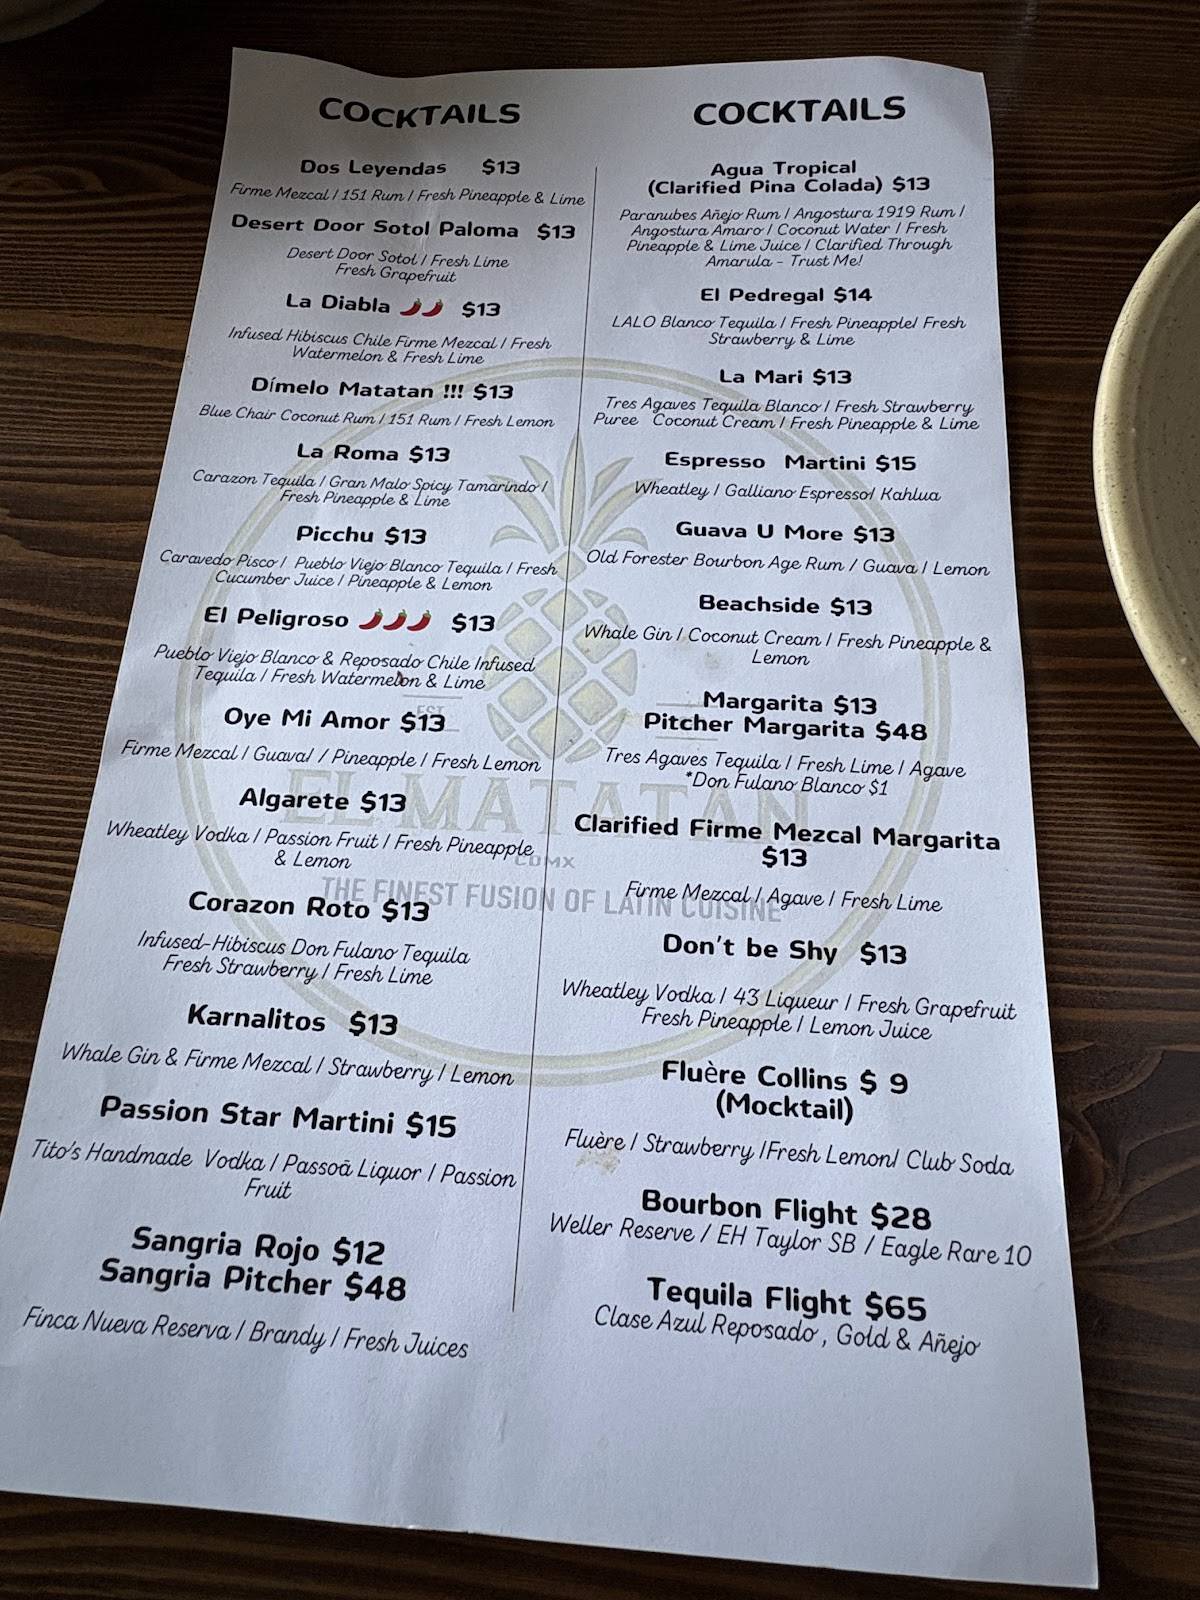 COCKTAILS
Dos Leyendas $13
Firme Mezcal / 151 Rum / Fresh Pineapple & Lime
Desert Door Sotol Paloma $13
Desert Door Sotol / Fresh Lime
Fresh Grapefruit
La Diabla 🌶️🌶️ $13
Infused Hibiscus Chile Firme Mezcal / Fresh
Watermelon & Fresh Lime
Dímelo Matatan !!! $13
Blue Chair Coconut Rum / 151 Rum / Fresh Lemon
La Roma $13
Carazon Tequila / Gran Malo Spicy Tamarindo /
Fresh Pineapple & Lime
Picchu $13
Caravedo Pisco / Pueblo Viejo Blanco Tequila / Fresh
Cucumber Juice / Pineapple & Lemon
El Peligroso 🌶️🌶️🌶️ $13
Pueblo Viejo Blanco & Reposado Chile Infused
Tequila / Fresh Watermelon & Lime
Oye Mi Amor $13
Firme Mezcal / Guava/ / Pineapple / Fresh Lemon
Algarete $13
Wheatley Vodka / Passion Fruit / Fresh Pineapple
& Lemon
Corazon Roto $13
Infused-Hibiscus Don Fulano Tequila
Fresh Strawberry / Fresh Lime
Karnalitos $13
Whale Gin & Firme Mezcal / Strawberry / Lemon
Passion Star Martini $15
Tito's Handmade Vodka / Passoã Liquor / Passion
Fruit
Sangria Rojo $12
Sangria Pitcher $48
Finca Nueva Reserva / Brandy / Fresh Juices
COCKTAILS
Agua Tropical
(Clarified Pina Colada) $13
Paranubes Añejo Rum / Angostura 1919 Rum /
Angostura Amaro / Coconut Water / Fresh
Pineapple & Lime Juice / Clarified Through
Amarula - Trust Me!
El Pedregal $14
LALO Blanco Tequila / Fresh Pineapple/ Fresh
Strawberry & Lime
La Mari $13
Tres Agaves Tequila Blanco / Fresh Strawberry
Puree Coconut Cream / Fresh Pineapple & Lime
Espresso Martini $15
Wheatley / Galliano Espresso/ Kahlua
Guava U More $13
Old Forester Bourbon Age Rum / Guava / Lemon
Beachside $13
Whale Gin / Coconut Cream / Fresh Pineapple &
Lemon
Margarita $13
Pitcher Margarita $48
Tres Agaves Tequila / Fresh Lime / Agave
*Don Fulano Blanco $1
Clarified Firme Mezcal Margarita
$13
Firme Mezcal / Agave / Fresh Lime
Don't be Shy $13
Wheatley Vodka / 43 Liqueur / Fresh Grapefruit
Fresh Pineapple / Lemon Juice
Fluère Collins $ 9
(Mocktail)
Fluère / Strawberry /Fresh Lemon/ Club Soda
Bourbon Flight $28
Weller Reserve / EH Taylor SB / Eagle Rare 10
Tequila Flight $65
Clase Azul Reposado , Gold & Añejo
EST.
EL MATATAN
CDMX
THE FINEST FUSION OF LATIN CUISINE